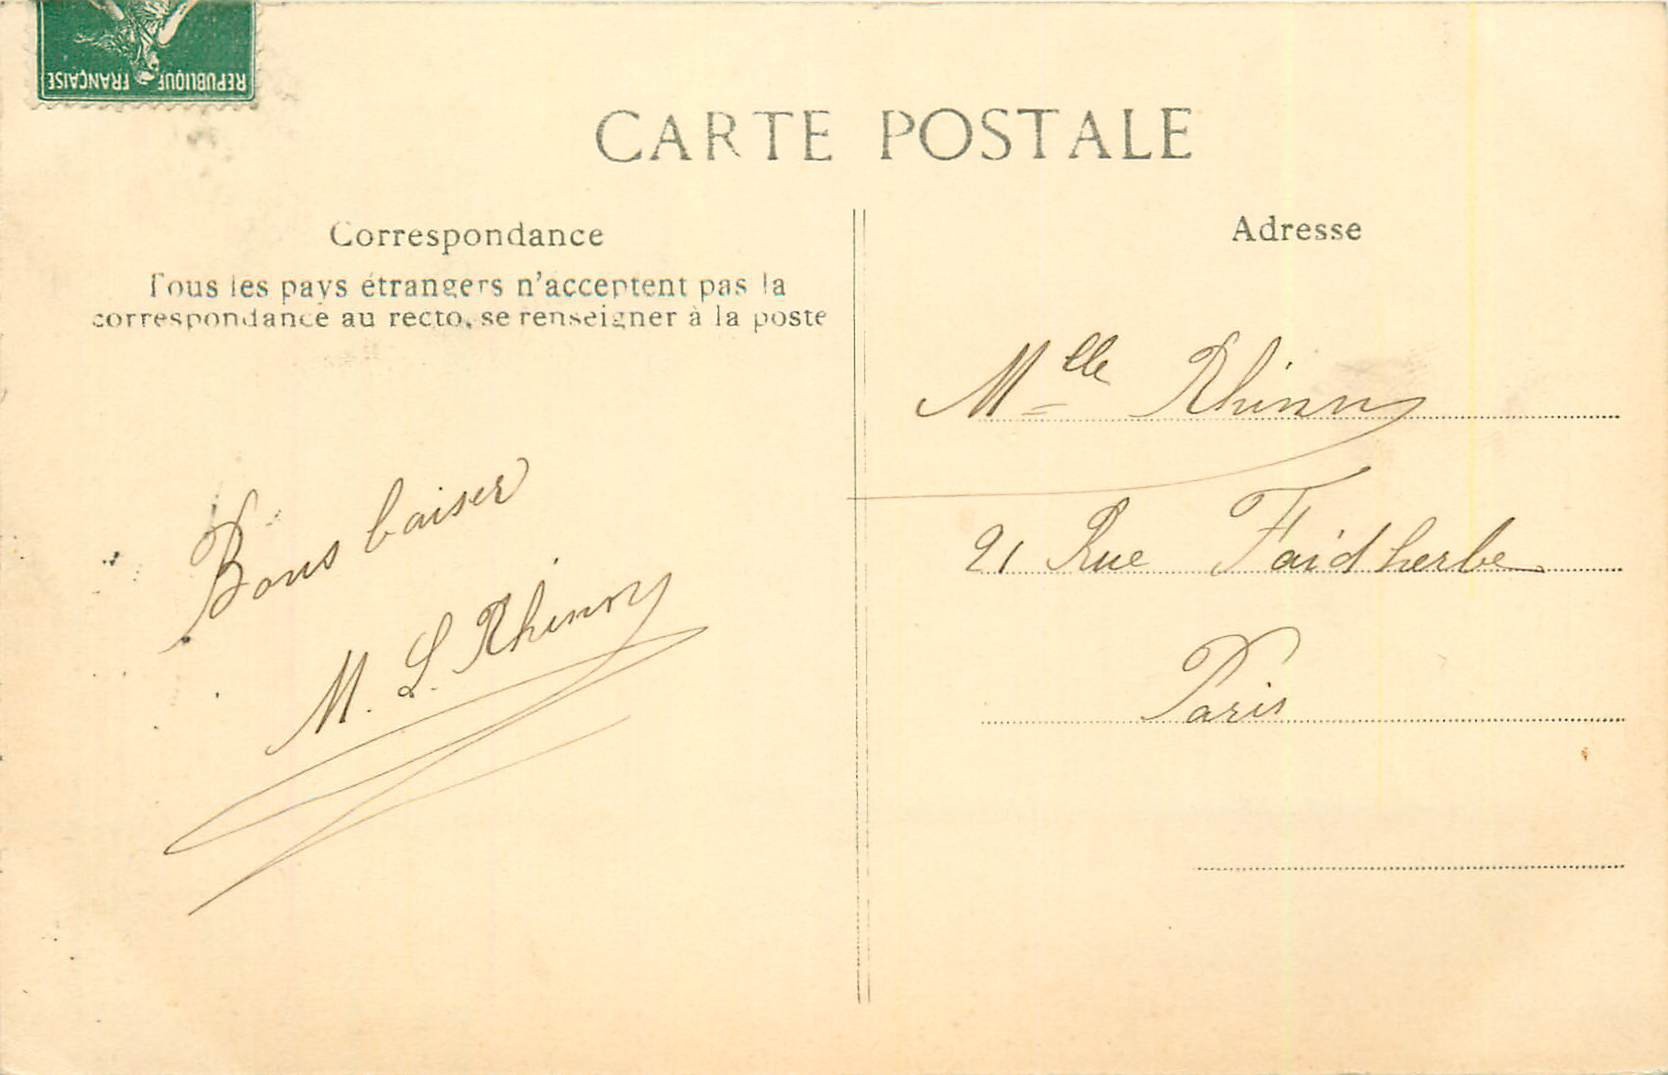 REPUBLIQUE FRANÇAISE
CARTE POSTALE
Correspondance
Tous les pays étrangers n'acceptent pas la
correspondance au recto, se renseigner à la poste
Bons baiser
M. L. Rhinny
Adresse
Mlle Rhinny
21 Rue Faidherbe
Paris